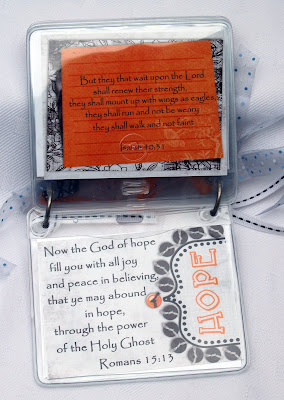 But they that wait upon the Lord
shall renew their strength,
they shall mount up with wings as eagles,
they shall run and not be weary
they shall walk and not faint
Isaiah 40:31
Now the God of hope
fill you with all joy
and peace in believing,
that ye may abound
in hope,
through the power
of the Holy Ghost
Romans 15:13
HOPE